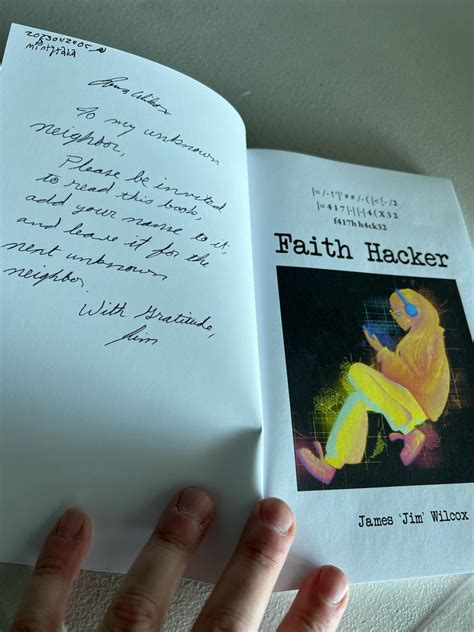 mintaka
To my unknown
neighbor,
Please be invited
to read this book,
add your name to it,
and leave it for the
next unknown
neighbor.
With Gratitude,
Jim
f417h h4ck32
Faith Hacker
James 'Jim' Wilcox